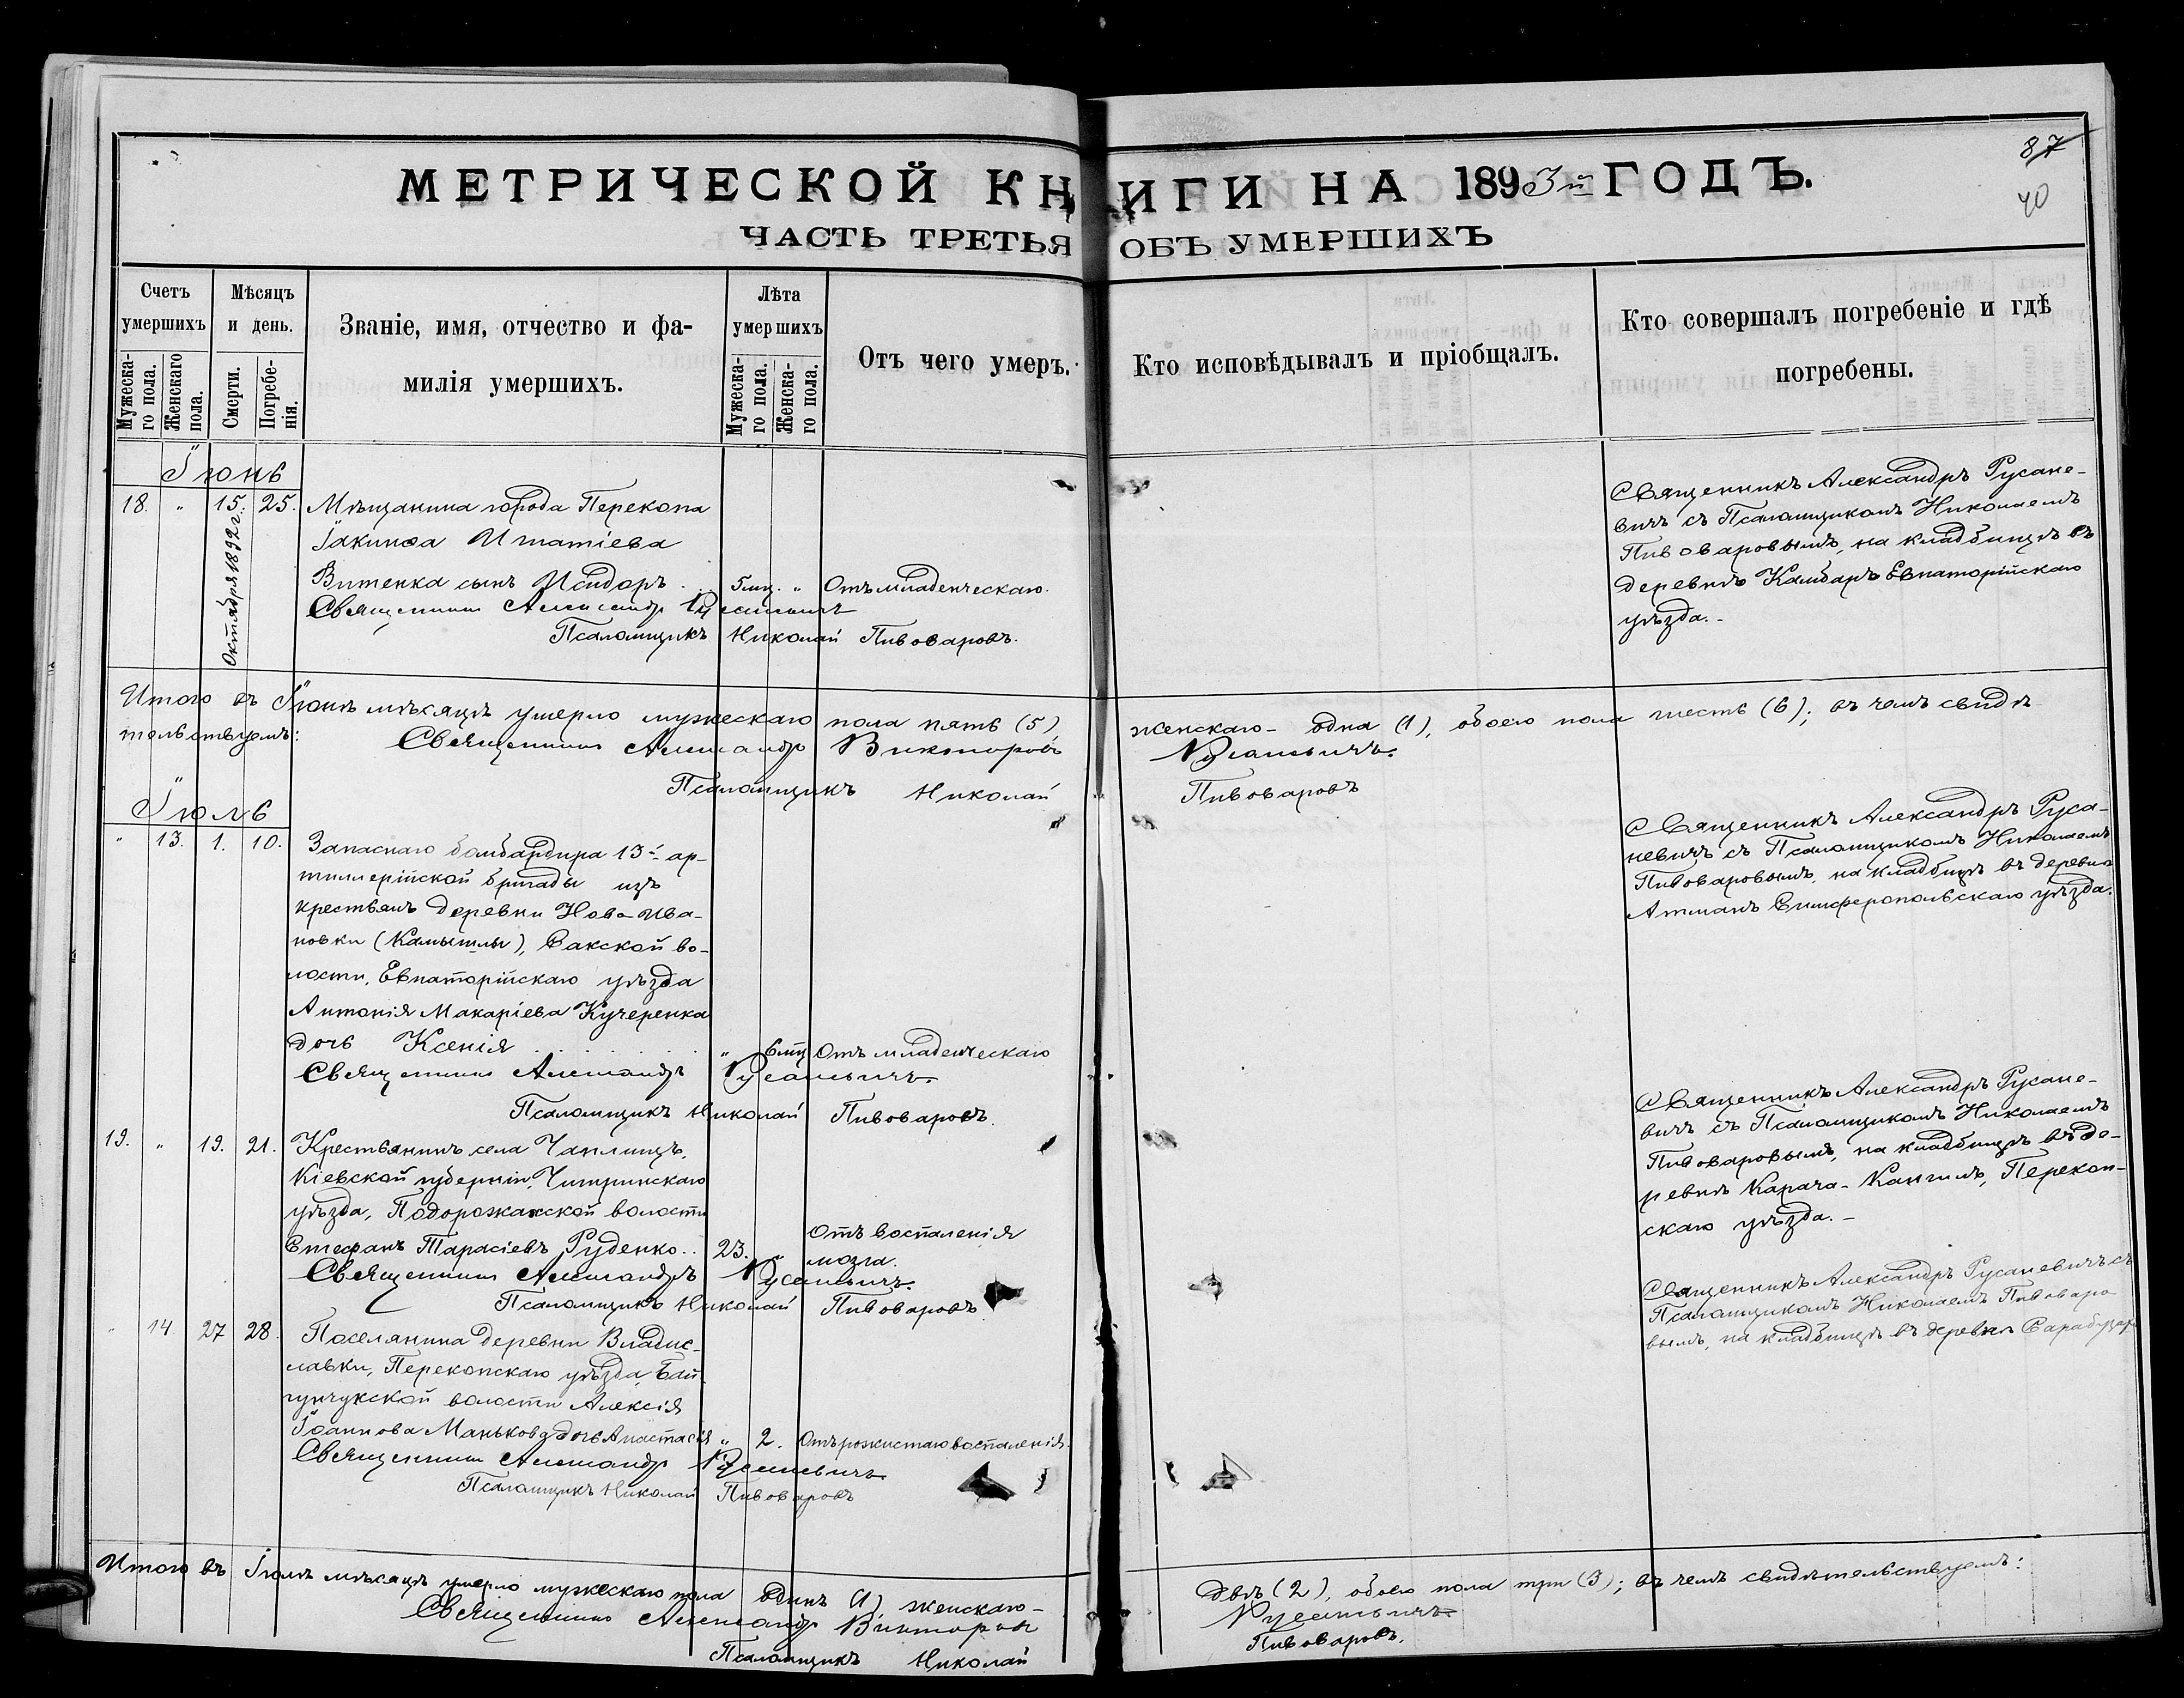 87
40
МЕТРИЧЕСКОЙ КНИГИ НА 1893й ГОДЪ.
ЧАСТЬ ТРЕТЬЯ ОБЪ УМЕРШИХЪ
Счетъ умершихъ
Мужескаго пола.
Женскаго пола.
Мѣсяцъ и день.
Смерти.
Погребенія.
Званіе, имя, отчество и фамилія умершихъ.
Лѣта умершихъ
Мужескаго пола.
Женскаго пола.
Отъ чего умеръ.
Кто исповѣдывалъ и пріобщалъ.
Кто совершалъ погребеніе и гдѣ погребены.
Іюнь
18. " 15. 25. Мѣщанина города Перекопа
Октября 1892 г.
Іакинѳа Игнатіева
Витенка сынъ Исидоръ . . 5 мц. " Отъ младенческаго.
Священникъ Александръ Русаневичъ
Псаломщикъ Николай Пивоваровъ.
Священникъ Александръ Русане-
вичъ съ Псаломщикомъ Николаемъ
Пивоваровымъ, на кладбищѣ въ
деревнѣ Камбаръ Евпаторійскаго
уѣзда.-
Итого въ Іюнѣ мѣсяцѣ умерло мужескаго пола пять (5) женскаго - одна (1), обоего пола шесть (6); въ чемъ свидѣ
тельствуемъ: Священникъ Александръ Викторовъ Русаневичъ.
Псаломщикъ Николай Пивоваровъ
Іюль
" 13. 1. 10. Запаснаго бомбардира 13й ар-
тиллерійской бригады изъ
крестьянъ деревни Ново-Ива-
новки (Камышлы), Сакской во-
лости, Евпаторійскаго уѣзда
Антонія Макаріева Кучеренка
дочь Ксенія . . . . . . " 6 мц Отъ младенческаго
Священникъ Александръ Русаневичъ.
Псаломщикъ Николай Пивоваровъ.
Священникъ Александръ Руса-
невичъ съ Псаломщикомъ Николаемъ
Пивоваровымъ, на кладбищѣ въ деревнѣ
Атманъ Симферопольскаго уѣзда.
19. " 19. 21. Крестьянинъ села Чаплищъ,
Кіевской губерніи, Чигринскаго
уѣзда, Подорожанской волости
Стефанъ Тарасіевъ Руденко.. 23. " Отъ воспаленія
мозга.
Священникъ Александръ Русаневичъ.
Псаломщикъ Николай Пивоваровъ
Священникъ Александръ Русане-
вичъ съ Псаломщикомъ Николаемъ
Пивоваровымъ, на кладбищѣ въ де-
ревнѣ Карача-Кангилъ, Перекоп-
скаго уѣзда.-
" 14. 27 28. Поселянина деревни Владис-
лавки, Перекопскаго уѣзда, Бай
гунчукской волости Алексія
Іоаннова Манькова дочь Анастасія " 2. Отъ рожистаго воспаленія.
Священникъ Александръ Русаневичъ
Псаломщикъ Николай Пивоваровъ
Священникъ Александръ Русаневичъ съ
Псаломщикомъ Николаемъ Пивоваро
вымъ, на кладбищѣ въ деревнѣ Сарабузѣ
Итого въ Іюлѣ мѣсяцѣ умерло мужескаго пола одинъ (1) женскаго - двѣ (2), обоего пола три (3); въ чемъ свидѣтельствуемъ:
Священникъ Александръ Викторовъ Русаневичъ
Псаломщикъ Николай Пивоваровъ.